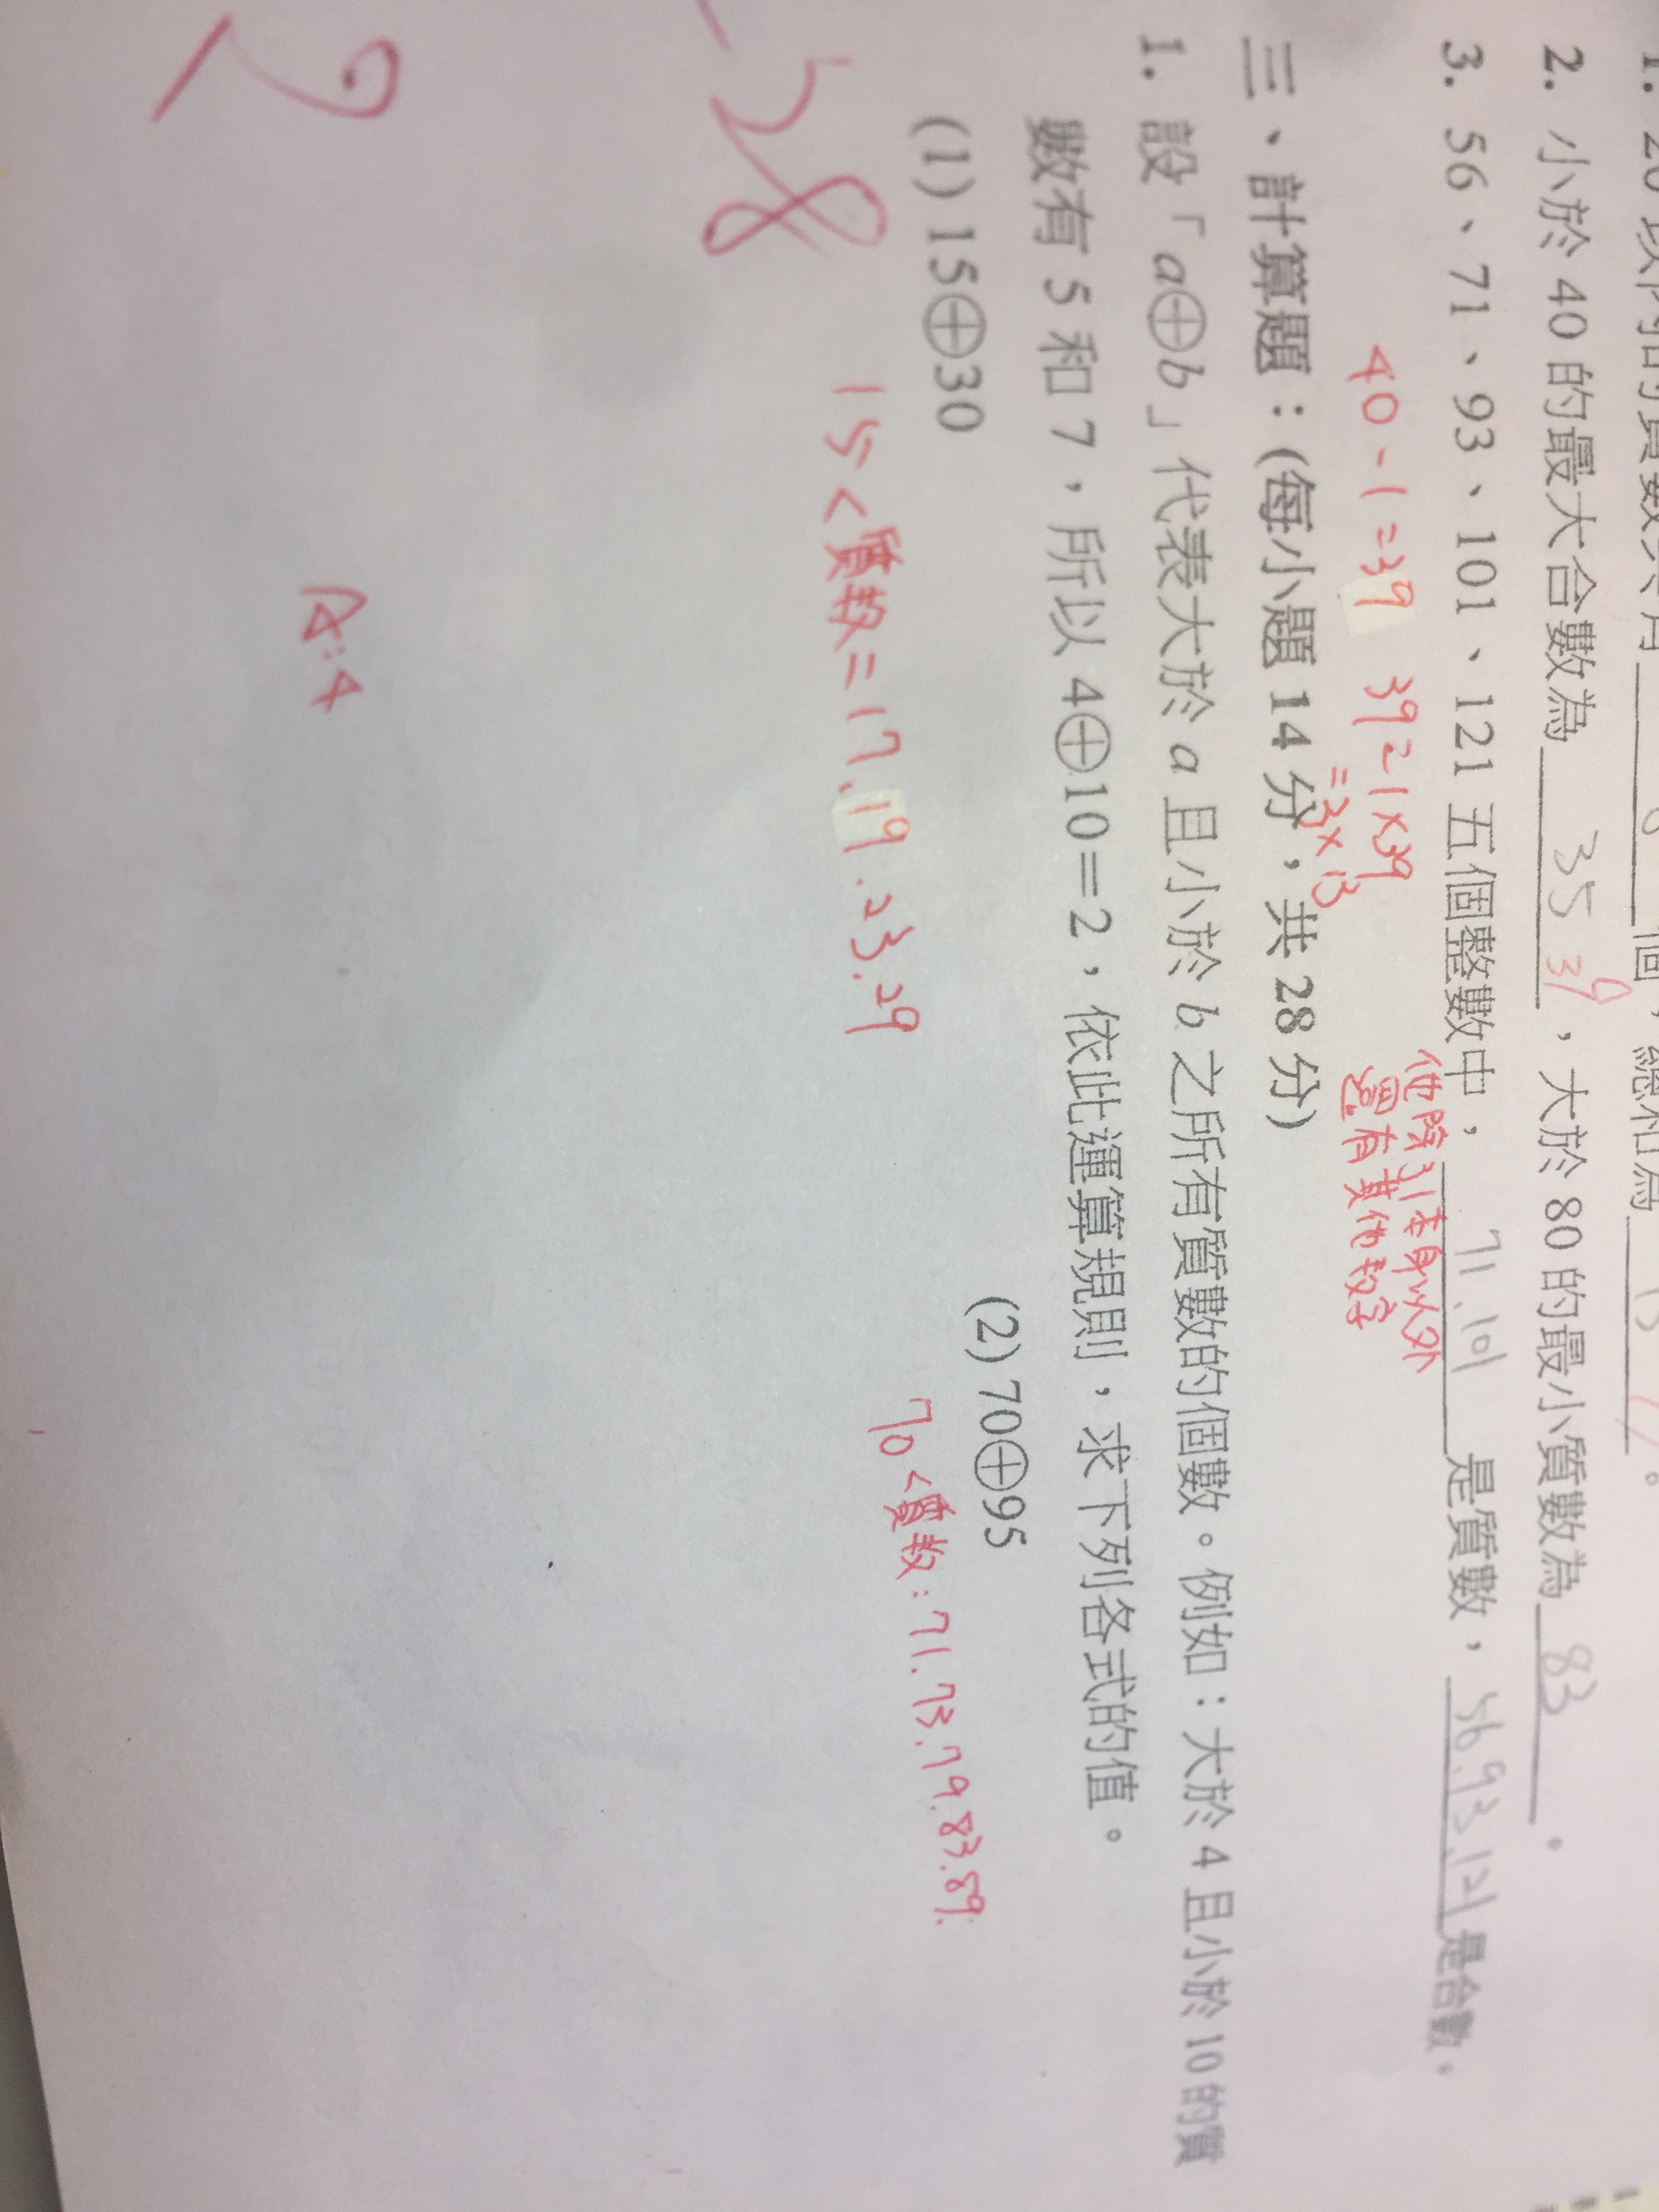 2. 小於 40 的最大合數為 35 39 ，大於 80 的最小質數為 83 。
3. 56、71、93、101、121 五個整數中， 71.101 是質數， 56.93.121 是合數。
40-1=39 39=1×39
=3×13
他除了1本身以外
還有其他數字
三、計算題：(每小題 14 分，共 28 分)
1. 設「a⊕b」代表大於 a 且小於 b 之所有質數的個數。例如：大於 4 且小於 10 的質
數有 5 和 7，所以 4⊕10＝2，依此運算規則，求下列各式的值。
(1) 15⊕30 (2) 70⊕95
15<質数=17.19.23.29
70<質数:71.73.79.83.89.
-28
A:4
?